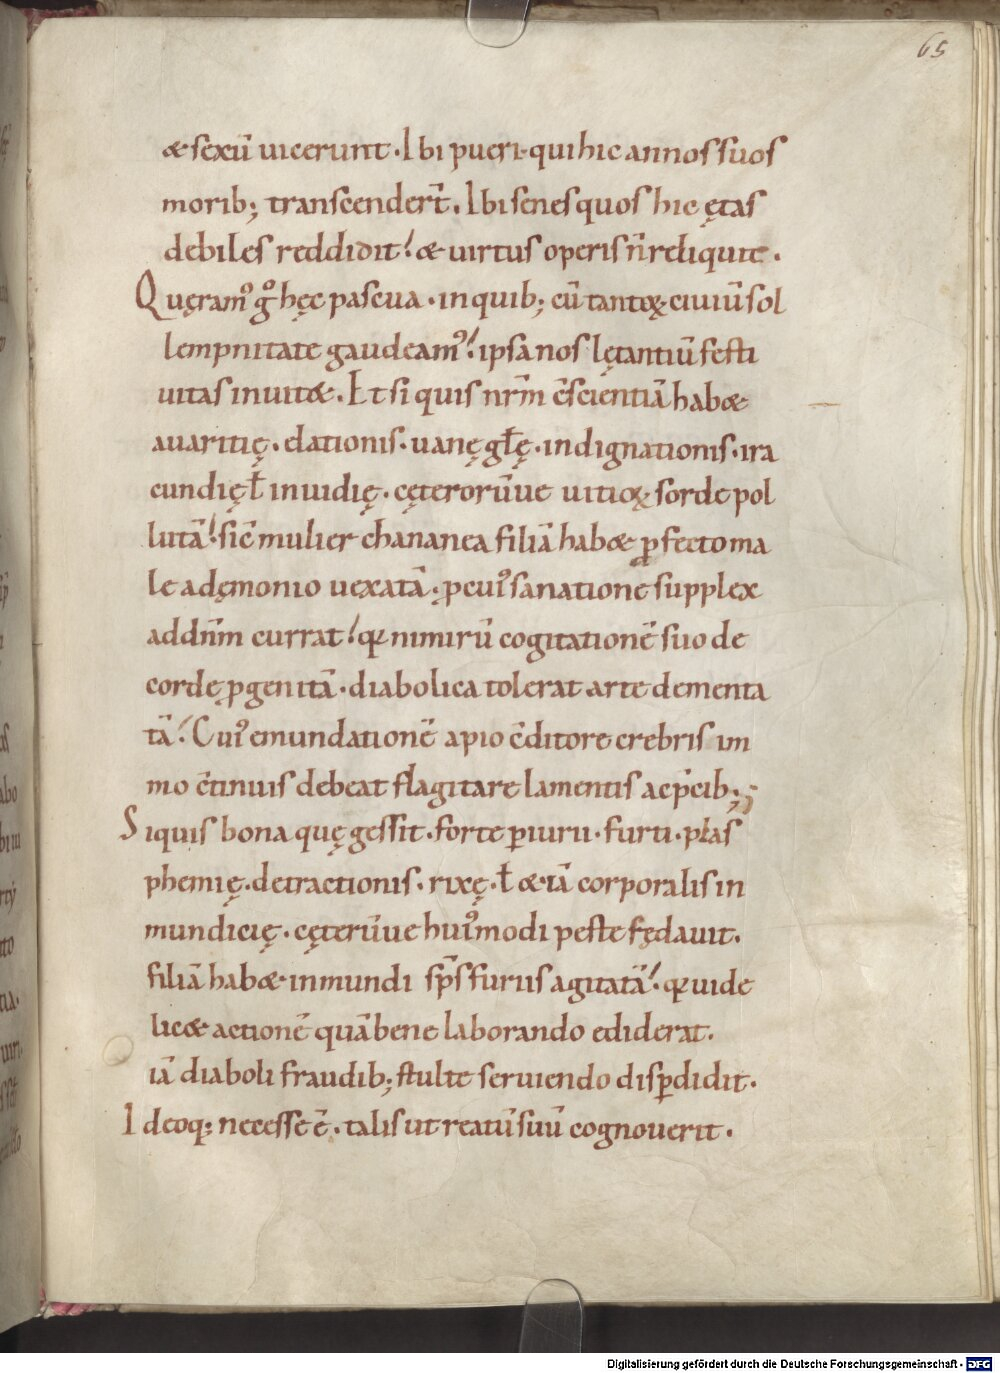 65
& sexū uicerunt. Ibi pueri. qui hic annos suos
morib; transcender̄t. Ibi senes quos hic ętas
debiles reddidit! & uirtus operis n̄ reliquit.
Quęramꝰ gͦ hęc pascua. in quib; cū tantoꝝ ciuiū sol
lempnitate gaudeamꝰ! ipsa nos lętantiū festi
uitas inuit&. Et si quis nr̄m c̄scientiā hab&
auaritię. elationis. uanę głę. indignationis. ira
cundię ł inuidię. cęterorūue uitioꝝ sorde pol
lutā! sic̄ mulier chananea filiā hab& ꝓfecto ma
le a dęmonio uexatā. ꝓ cuiꝰ sanatione supplex
ad dn̄m currat! qꝫ nimirū cogitationē suo de
corde ꝓgenitā. diabolica tolerat arte dementa
tā! Cuiꝰ emundationē a pio c̄ditore crebris im
mo c̄tinuis debeat flagitare lamentis ac p̄cib;
Si quis bona quę gessit. forte ꝑiurii. furti. blas
phemię. detractionis. rixę. ł &iā corporalis in
mundicię. cęterūue huiꝰmodi peste fędauit.
filiā hab& inmundi sp̄s furiis agitatā! qꝫ uide
lic& actionē quā bene laborando ediderat.
iā diaboli fraudib; stulte seruiendo disꝑdidit.
Ideoq; necesse ē. talis ut reatū suū cognouerit.
Digitalisierung gefördert durch die Deutsche Forschungsgemeinschaft - DFG